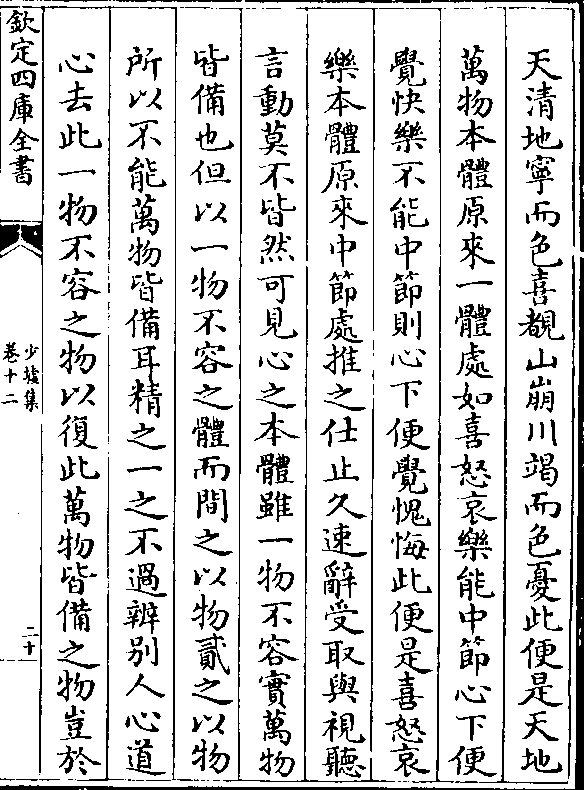 天清地寧而色喜覩山崩川竭而色憂此便是天地
萬物本體原來一體處如喜怒哀樂能中節心下便
覺快樂不能中節則心下便覺愧悔此便是喜怒哀
樂本體原來中節處推之仕止久速辭受取與視聽
言動莫不皆然可見心之本體雖一物不容實萬物
皆備也但以一物不容之體而間之以物貳之以物
所以不能萬物皆備耳精之一之不過辨別人心道
心去此一物不容之物以復此萬物皆備之物豈於
欽定四庫全書
少墟集
卷十二
二十